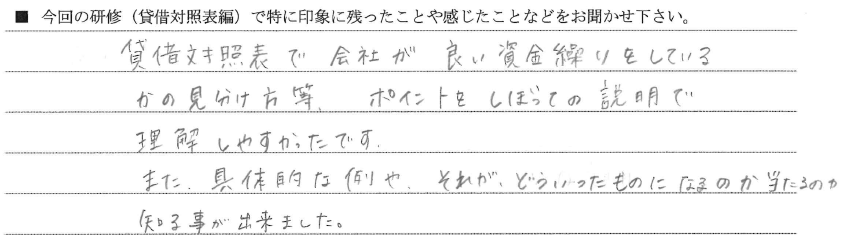 ■ 今回の研修（貸借対照表編）で特に印象に残ったことや感じたことなどをお聞かせ下さい。
貸借対照表で会社が良い資金繰りをしている
かの見分け方等、ポイントをしぼっての説明で
理解しやすかったです。
また、具体的な例や、それが、どういったものになるのか当たるのか
知る事が出来ました。